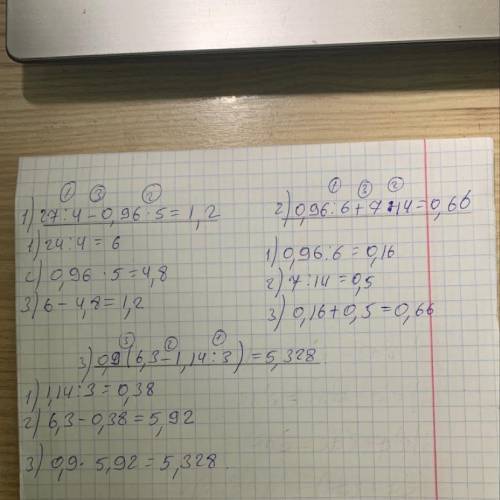 ① ③ ②
1) 27:4-0,96·5=1,2
1) 24:4=6
2) 0,96·5=4,8
3) 6-4,8=1,2
① ③ ②
2) 0,96:6+7:14=0,66
1) 0,96:6=0,16
2) 7:14=0,5
3) 0,16+0,5=0,66
③ ② ①
3) 0,9(6,3-1,14:3)=5,328
1) 1,14:3=0,38
2) 6,3-0,38=5,92
3) 0,9·5,92=5,328.